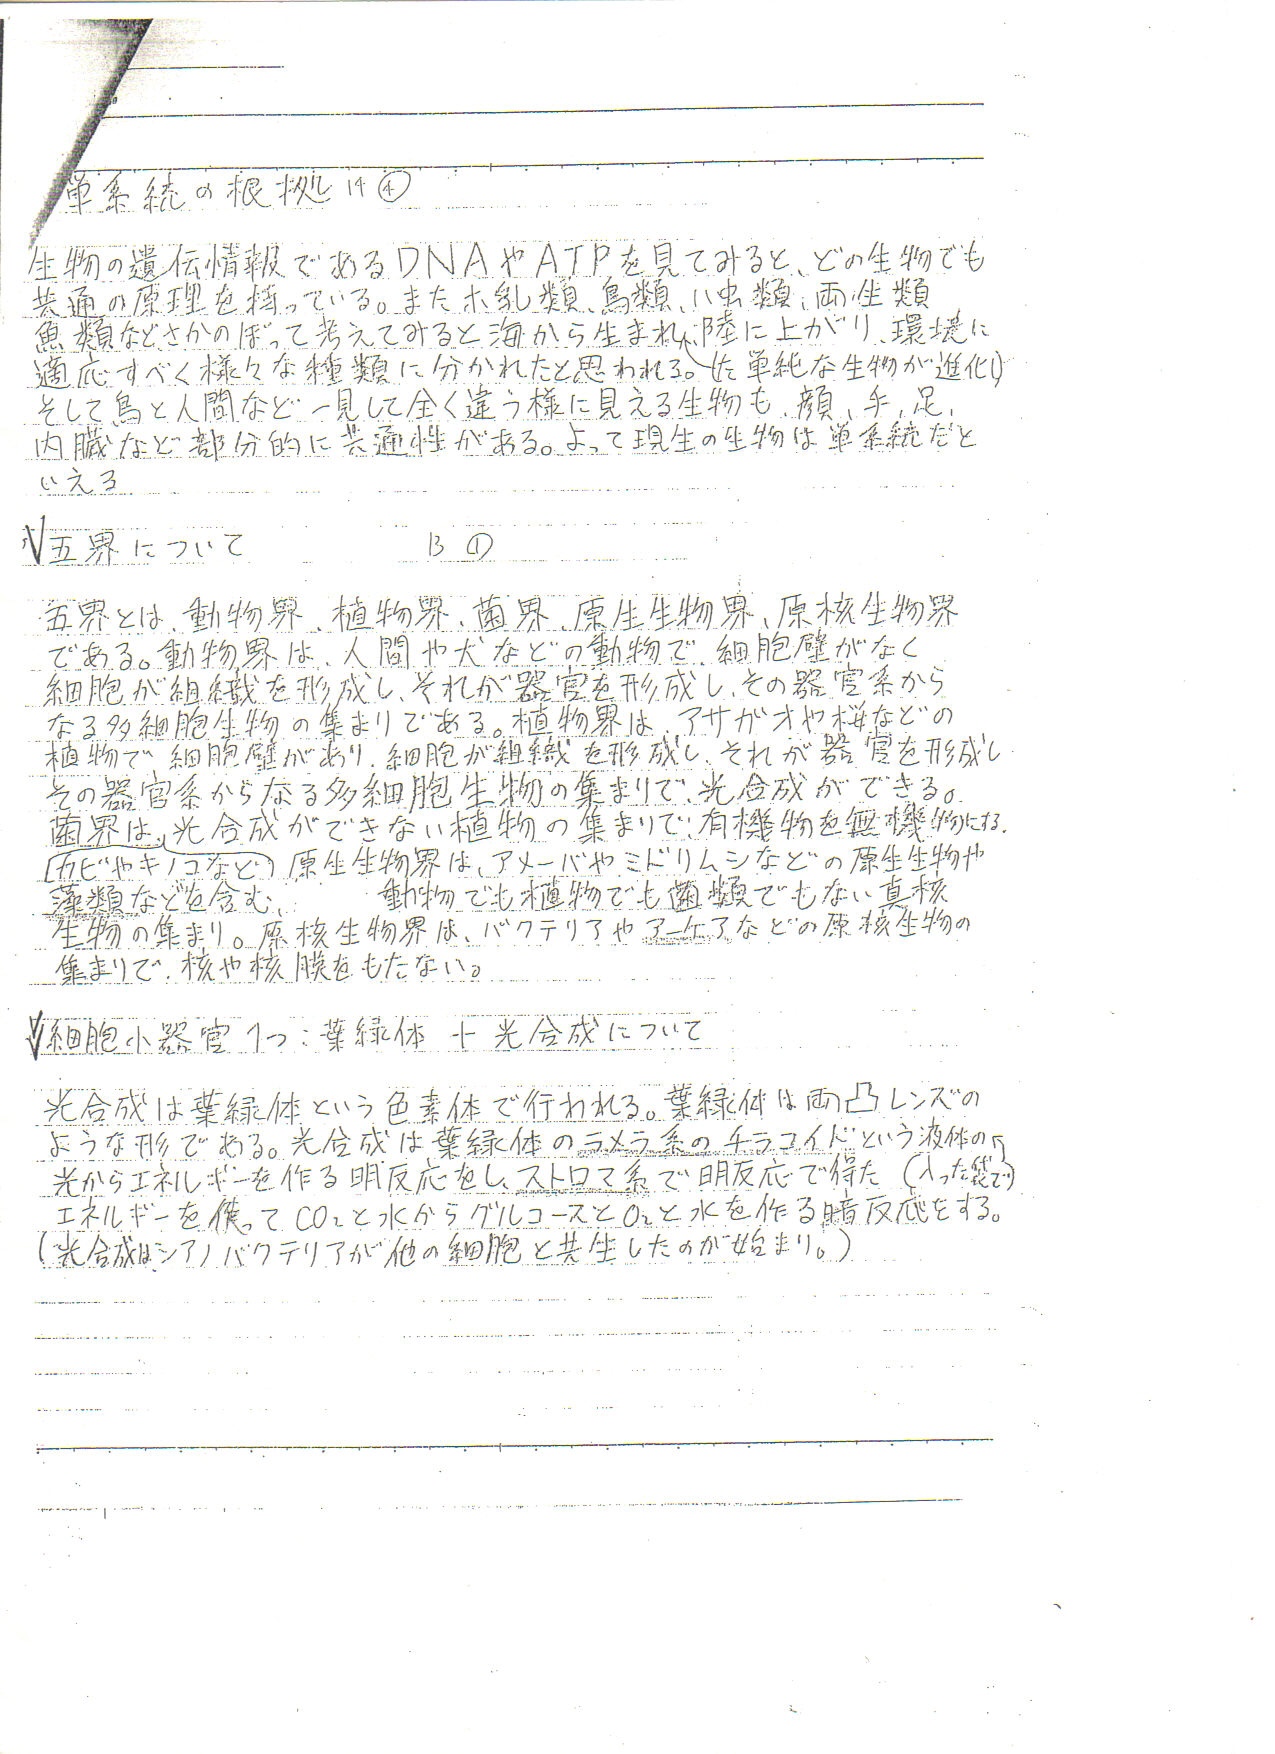 単系統の根拠 14 ④
生物の遺伝情報であるDNAやATPを見てみると、どの生物でも
共通の原理を持っている。またホ乳類、鳥類、ハ虫類、両生類
魚類などさかのぼって考えてみると海から生まれ、陸に上がり、環境に
適応すべく様々な種類に分かれたと思われる。した単純な生物が進化し
そして鳥と人間など一見して全く違う様に見える生物も、顔、手、足、
内臓など部分的に共通性がある。よって現生の生物は単系統だと
いえる
√五界について 13 ①
五界とは、動物界、植物界、菌界、原生生物界、原核生物界
である。動物界は、人間や犬などの動物で、細胞壁がなく
細胞が組織を形成し、それが器官を形成し、その器官系から
なる多細胞生物の集まりである。植物界は、アサガオや桜などの
植物で、細胞壁があり、細胞が組織を形成し、それが器官を形成し
その器官系からなる多細胞生物の集まりで、光合成ができる。
菌界は、光合成ができない植物の集まりで、有機物を無機物にる.
(カビやキノコなど) 原生生物界は、アメーバやミドリムシなどの原生生物や
藻類などを含む、 動物でも植物でも菌類でもない真核
生物の集まり。原核生物界は、バクテリアやアーケアなどの原核生物の
集まりで、核や核膜をもたない。
√細胞小器官1つ:葉緑体 + 光合成について
光合成は葉緑体という色素体で行われる。葉緑体は両凸レンズの
ような形である。光合成は葉緑体のラメラ系のチラコイドという液体の
光からエネルギーを作る明反応をし、ストロマ系で明反応で得た (入った袋で)
エネルギーを使ってCO₂と水からグルコースとO₂と水を作る暗反応をする。
(光合成はシアノバクテリアが他の細胞と共生したのが始まり。)